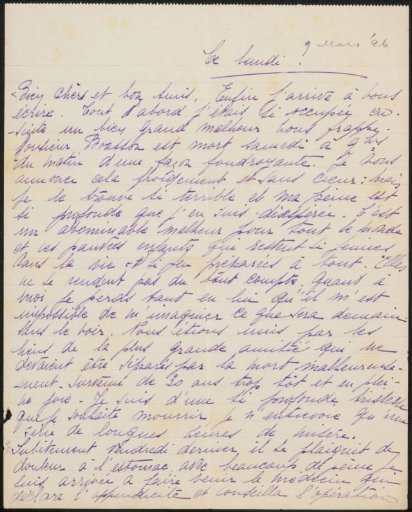 9 Mars '26
Ce lundi.
Bien chers et bon amis. Enfin j'arrive à vous
écrire. Tout d'abord j'étais si occupée en-
suite un bien grand malheur nous frappe.
Monsieur est mort samedi à 9 hrs
du matin d'une façon foudroyante. Je vous
annonce cela froidement et sans cœur: mais
je le trouve si terrible et ma peine est
si profonde que j'en suis désespérée. C'est
un abominable malheur pour tout le monde
et ces pauvres enfants qui restent si jeunes
dans la vie et si peu préparées à tout. Elles
ne se rendent pas du tout compte. Quant à
moi je perds tant en lui qu'il m'est
impossible de m'imaginer ce que sera demain
sans le voir. Nous étions unis par les
liens de la plus grande amitié qui ne
devaient être séparés par la mort malheureuse-
ment survenue de 20 ans trop tôt et en plei-
ne joie. Je suis d'une si profonde tristesse
que je souhaite mourrir je n'entrevois qu'une
série de longues heures de misère.
Subitement vendredi dernier, il se plaignit de
douleur à l'estomac avec beaucoup de peine je
suis arrivée à faire venir le médecin qui
déclare l'appendicite et conseille l'opération